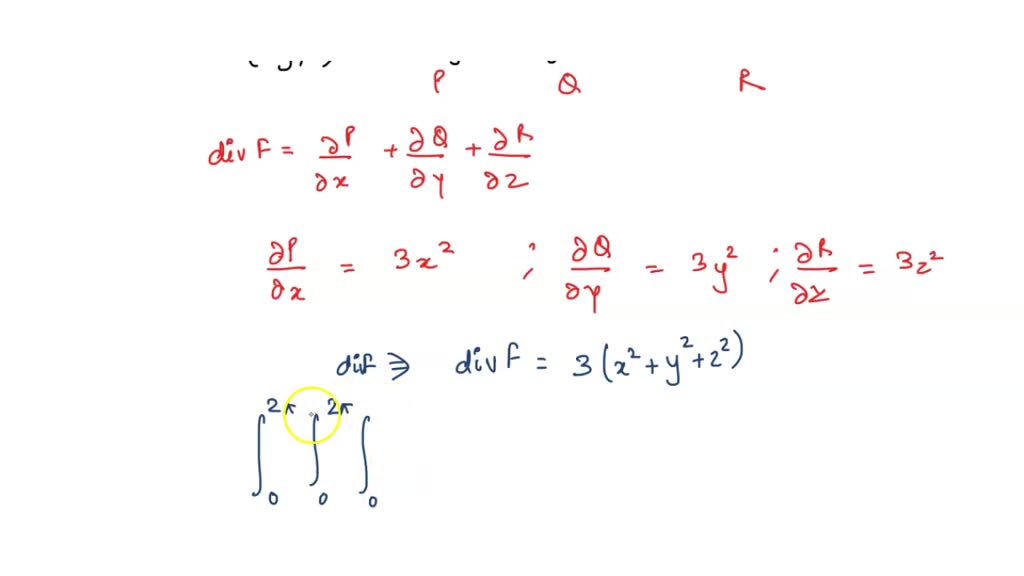 P Q R
div F = ∂P/∂x + ∂Q/∂y + ∂R/∂z
∂P/∂x = 3x² ; ∂Q/∂y = 3y² ; ∂R/∂z = 3z²
dif ⇒ div F = 3(x² + y² + z²)
∫₀^2π ∫₀^2π ∫₀